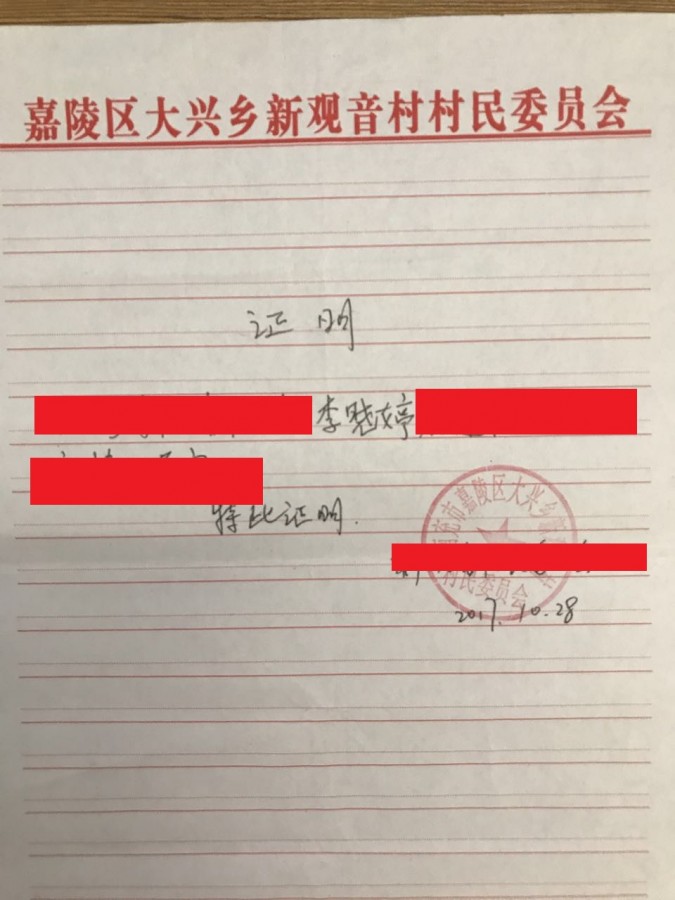 嘉陵区大兴乡新观音村村民委员会
证明
李魅婷
特此证明.
南充市嘉陵区大兴乡
村民委员会
2017.10.28